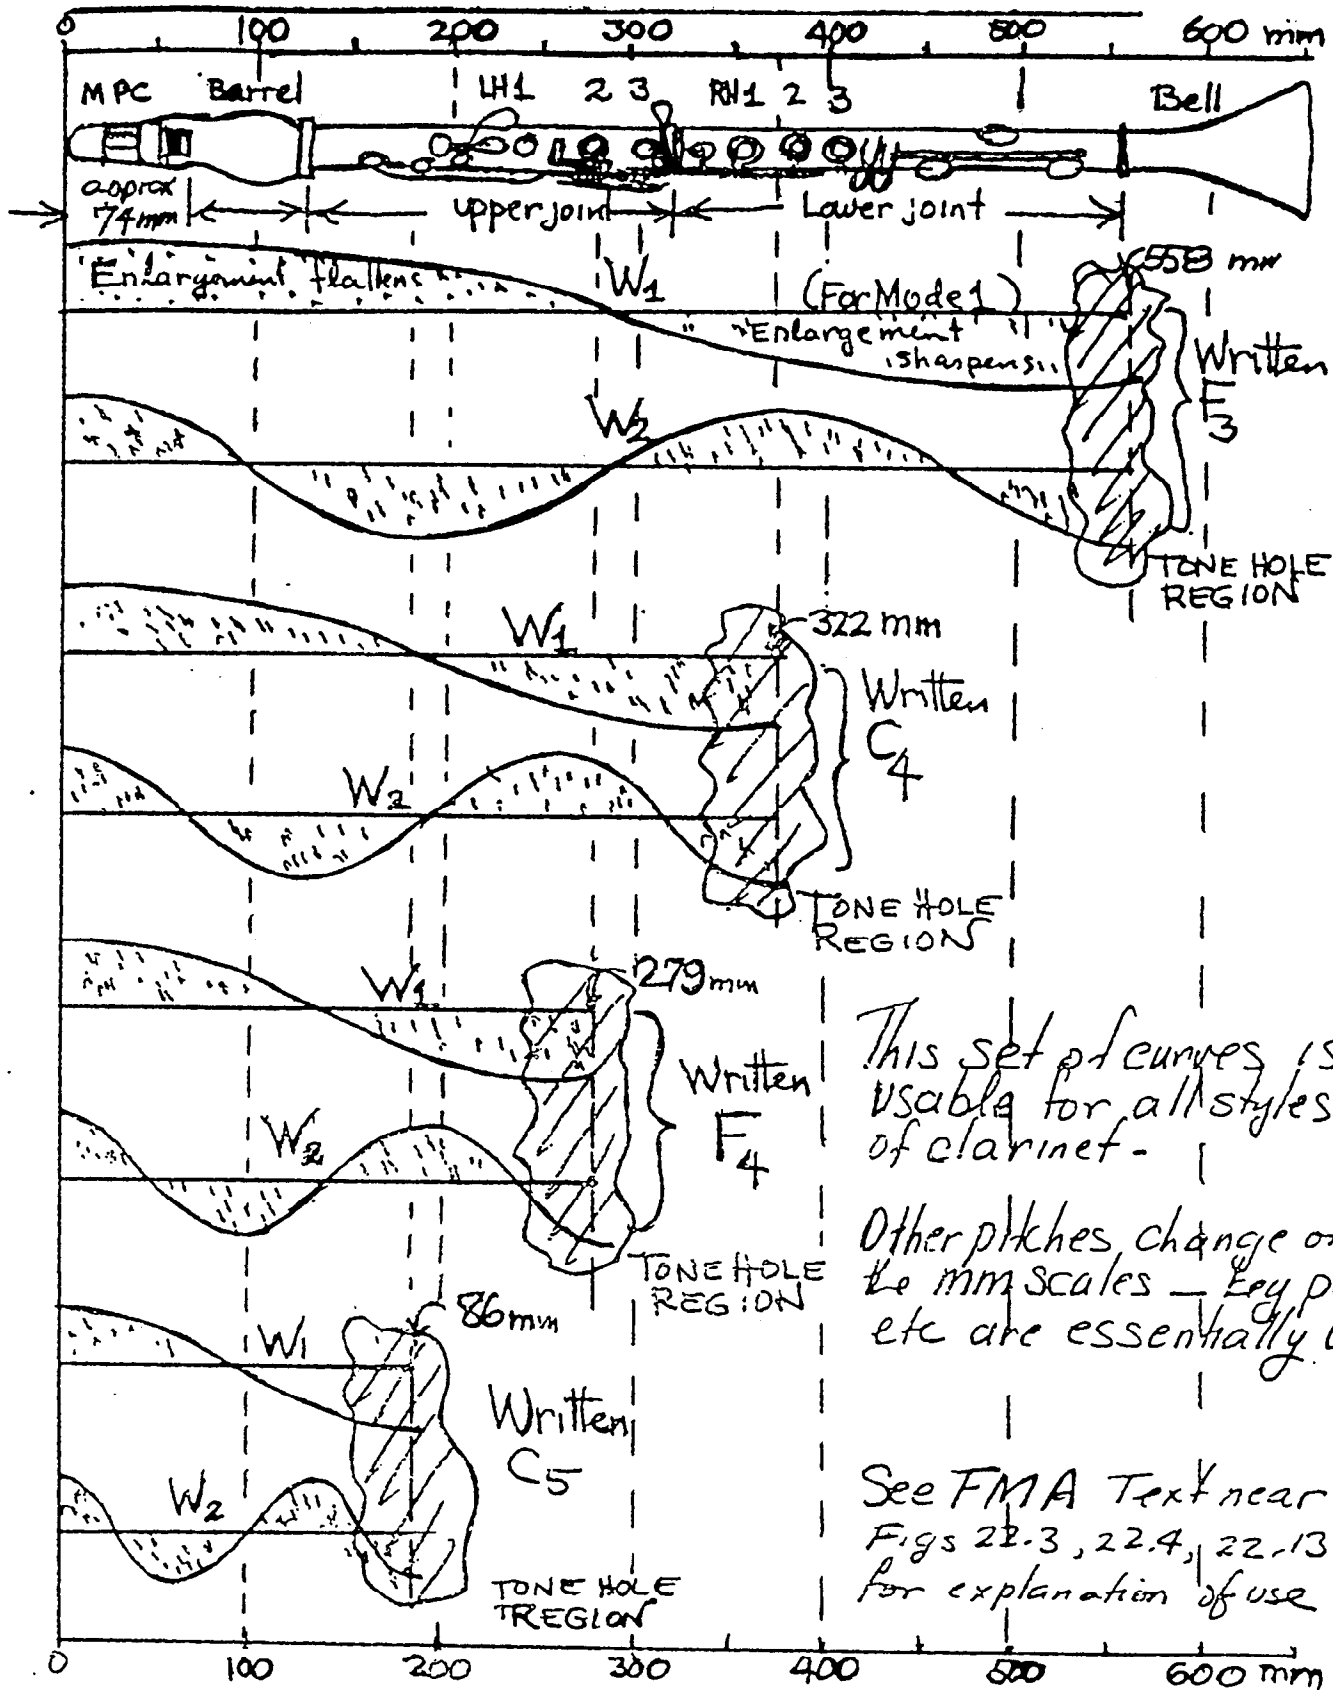 0 100 200 300 400 500 600 mm
MPC Barrel LH1 2 3 RH1 2 3 Bell
approx
74mm upper joint Lower joint
558 mm
Enlargement flattens W1 (For Mode 1)
Enlargement
sharpens
Written
F3
W2
TONE HOLE
REGION
W1 322 mm
Written
C4
W2
TONE HOLE
REGION
W1 279mm
Written
F4
W2
TONE HOLE
REGION
This set of curves is
usable for all styles
of clarinet -
Other pitches change
the mm scales —
etc are essentially
W1 86mm
Written
C5
W2
TONE HOLE
REGION
See FMA Text near
Figs 22.3, 22.4, 22.13
for explanation of use
0 100 200 300 400 500 600 mm